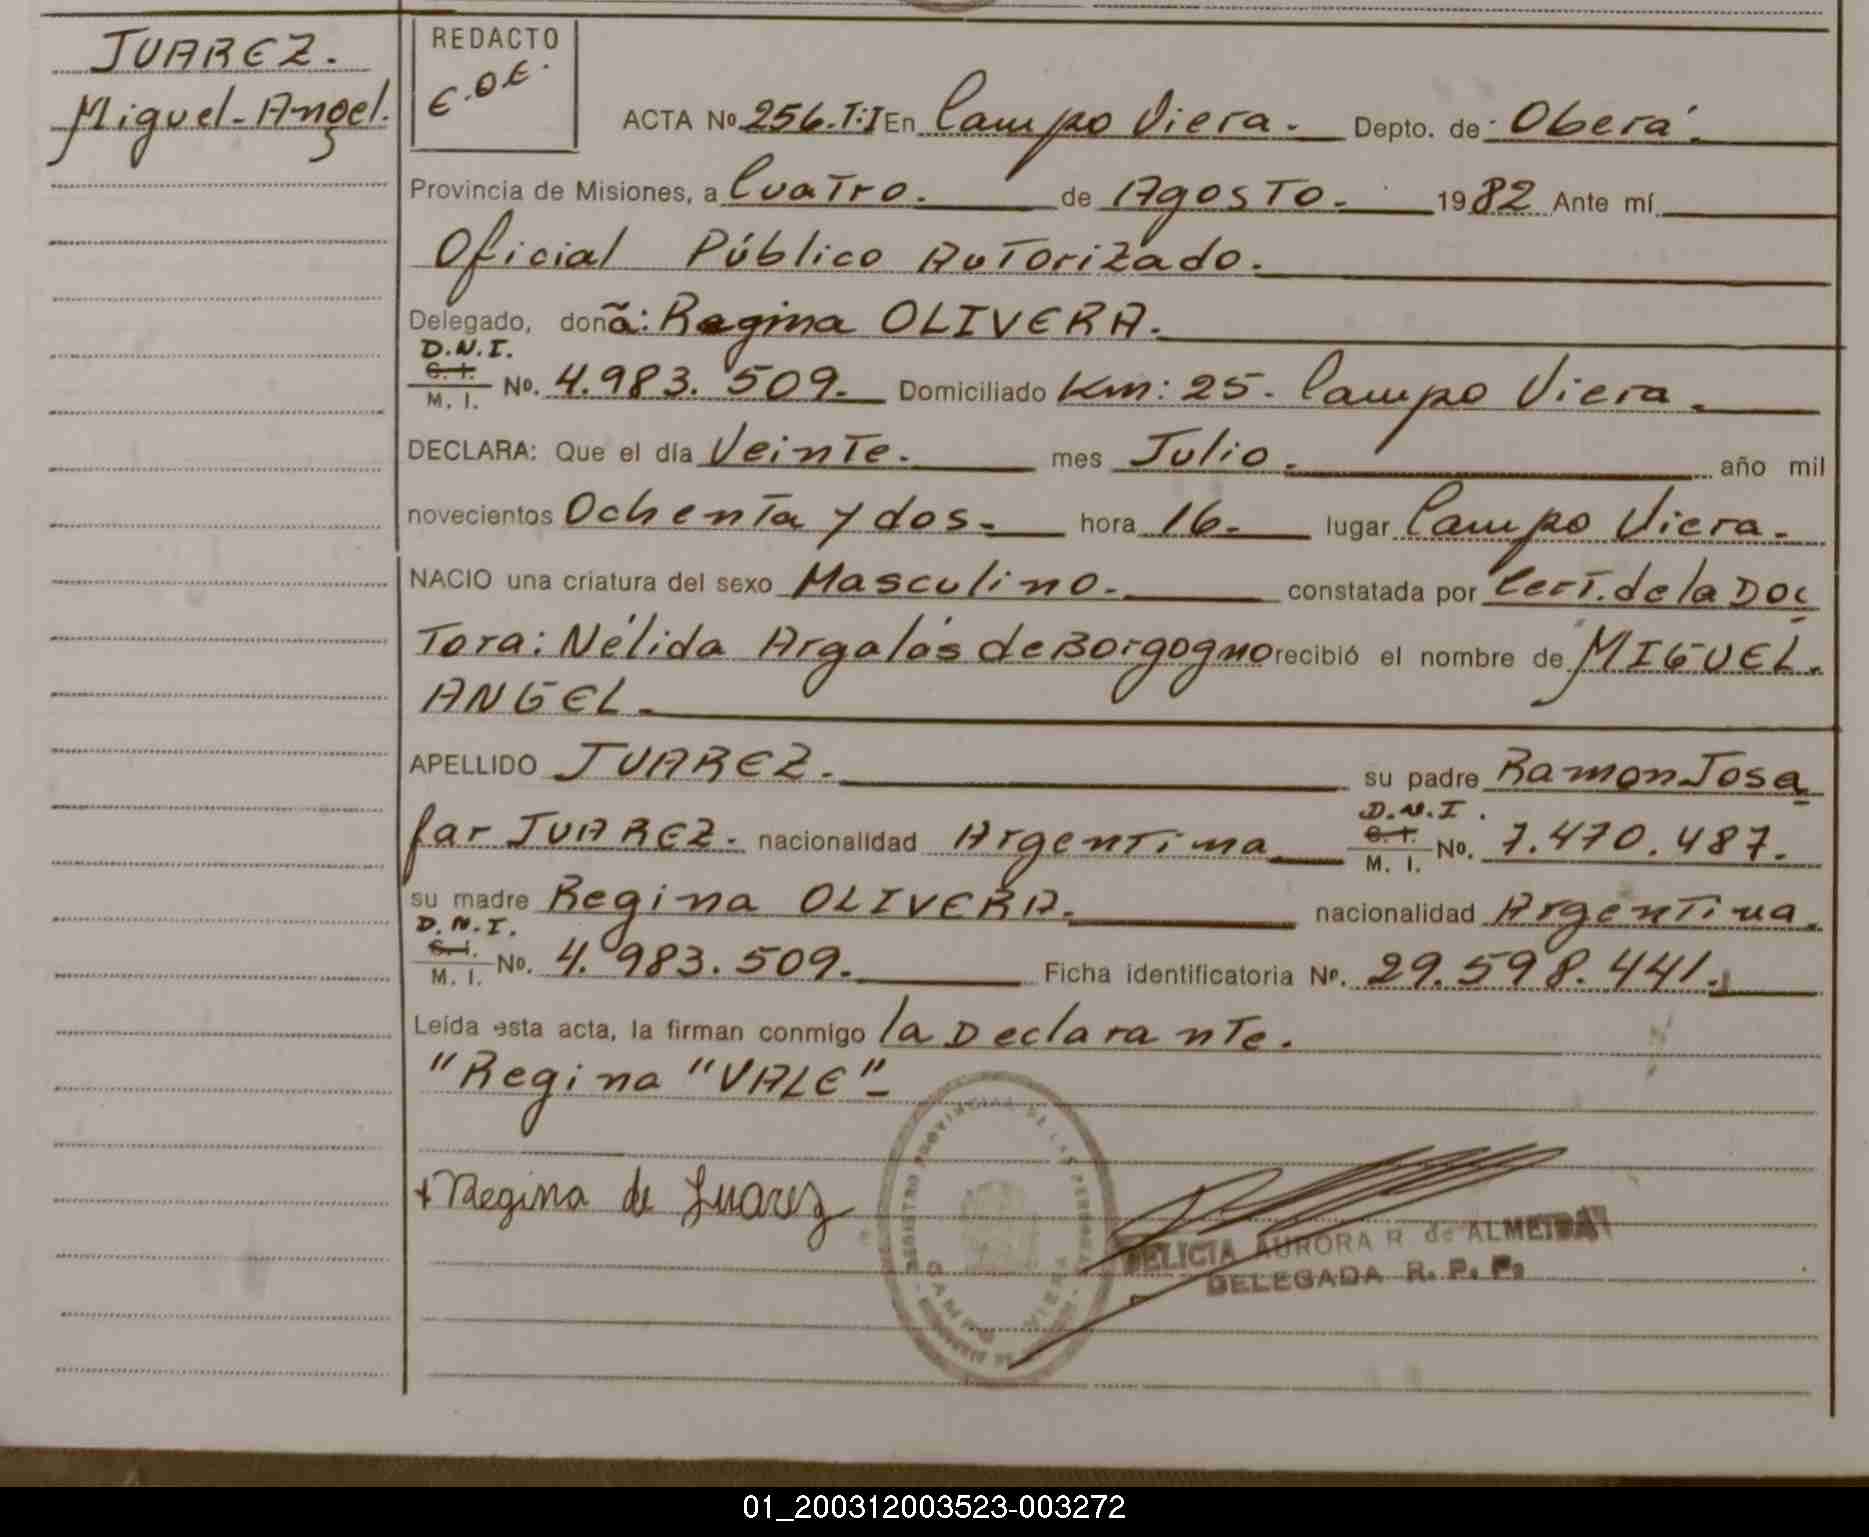 JUAREZ.
Miguel-Angel.
REDACTO
E.O.E.
ACTA Nº 256.T:I En Campo Viera. Depto. de Oberá.
Provincia de Misiones, a Cuatro. de Agosto. 1982 Ante mí
Oficial Público Autorizado.
Delegado, doña: Regina OLIVERA.
D.N.I.
C. I.
M. I.
No. 4.983.509. Domiciliado Km: 25. Campo Viera.
DECLARA: Que el día Veinte. mes Julio. año mil
novecientos Ochenta y dos. hora 16. lugar Campo Viera.
NACIO una criatura del sexo Masculino. constatada por Cert. de la Doc
Tora: Nélida Argalás de Borgogno recibió el nombre de MIGUEL.
ANGEL.
APELLIDO JUAREZ. su padre Ramon Josa
far JUAREZ. nacionalidad Argentina D.N.I. C. I. M. I. No. 7.470.487.
su madre Regina OLIVERA. nacionalidad Argentina.
D.N.I.
C. I.
M. I.
No. 4.983.509. Ficha identificatoria Nº. 29.598.441.
Leída esta acta, la firman conmigo la Declarante.
"Regina "VALE"
Regina de Juarez
REGISTRO PROVINCIAL DE LAS PERSONAS
CAMPO VIERA
DELICIA AURORA R. de ALMEIDA
DELEGADA R. P. P.
01_200312003523-003272